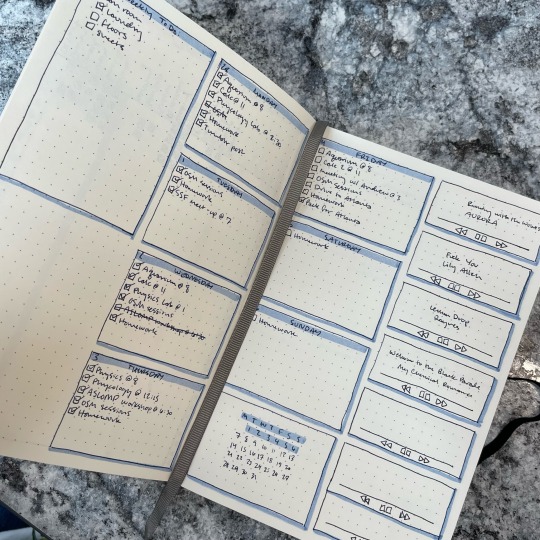 Weekly To Do
clean room
[laundry]
floors
sheets
MONDAY
Aquarium @ 8
Calc @ 11
Phycology Lab @ 2:30
Homework
Tumblr post
1 TUESDAY
OSM sessions
Homework
SSF meet-up @ 7
2 WEDNESDAY
Aquarium @ 8
Calc @ 11
Physics Lab @ 1
OSM sessions
Homework
3 THURSDAY
Physics @ 8
Phycology @ 12:15
ASCOMP workshop @ 6:30
OSM sessions
Homework
FRIDAY
Aquarium @ 8
Calc 2 @ 11
Meeting w/ Andrew @ 3
OSM sessions
Drive to Atlanta
Homework
Pack for Atlanta
SATURDAY
Homework
SUNDAY
Homework
M T W T F S S
1 2 3 4 5 6
7 8 9 10 11 12 13
14 15 16 17 18 19 20
21 22 23 24 25 26 27
28 29 30 31
Running with the Wolves
AURORA
Fuck You
Lily Allen
Lemon Drop
Welcome to the Black Parade
My Chemical Romance